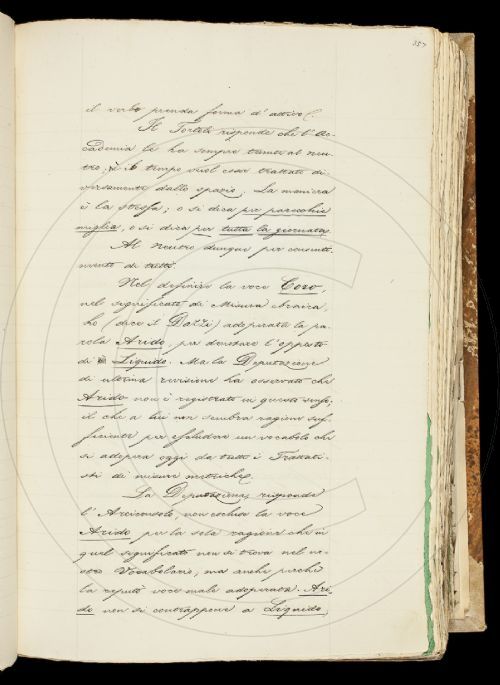 357
il verbo prenda forma d'attivo.
Il Tortoli risponde che l'Ac-
cademia le ha sempre tenute al neu-
tro; e il tempo vuol esser trattato di-
versamente dallo spazio. La maniera
è la stessa; o si dica per parecchie
miglia, o si dica per tutta la giornata.
Al Neutro dunque per consenti-
mento di tutti.
Nel definire la voce Coro,
nel significato di Misura
ho (dice il Dazzi) adoperata la pa-
rola Arido, per denotare l'opposto
di Liquido. Ma la Deputazione
di ultima revisione ha osservato che
Arido non è registrato in questo senso,
il che a lui non sembra ragione suf-
ficiente per escludere un vocabolo che
si adopera oggi da tutti i Trattati-
sti di misure metriche.
La Deputazione, risponde
l'Arciconsolo, non esclude la voce
Arido per la sola ragione che in
quel significato non si trova nel no-
stro Vocabolario, ma anche perché
la reputò voce male adoperata. Ari-
do non si contrappone a Liquido,